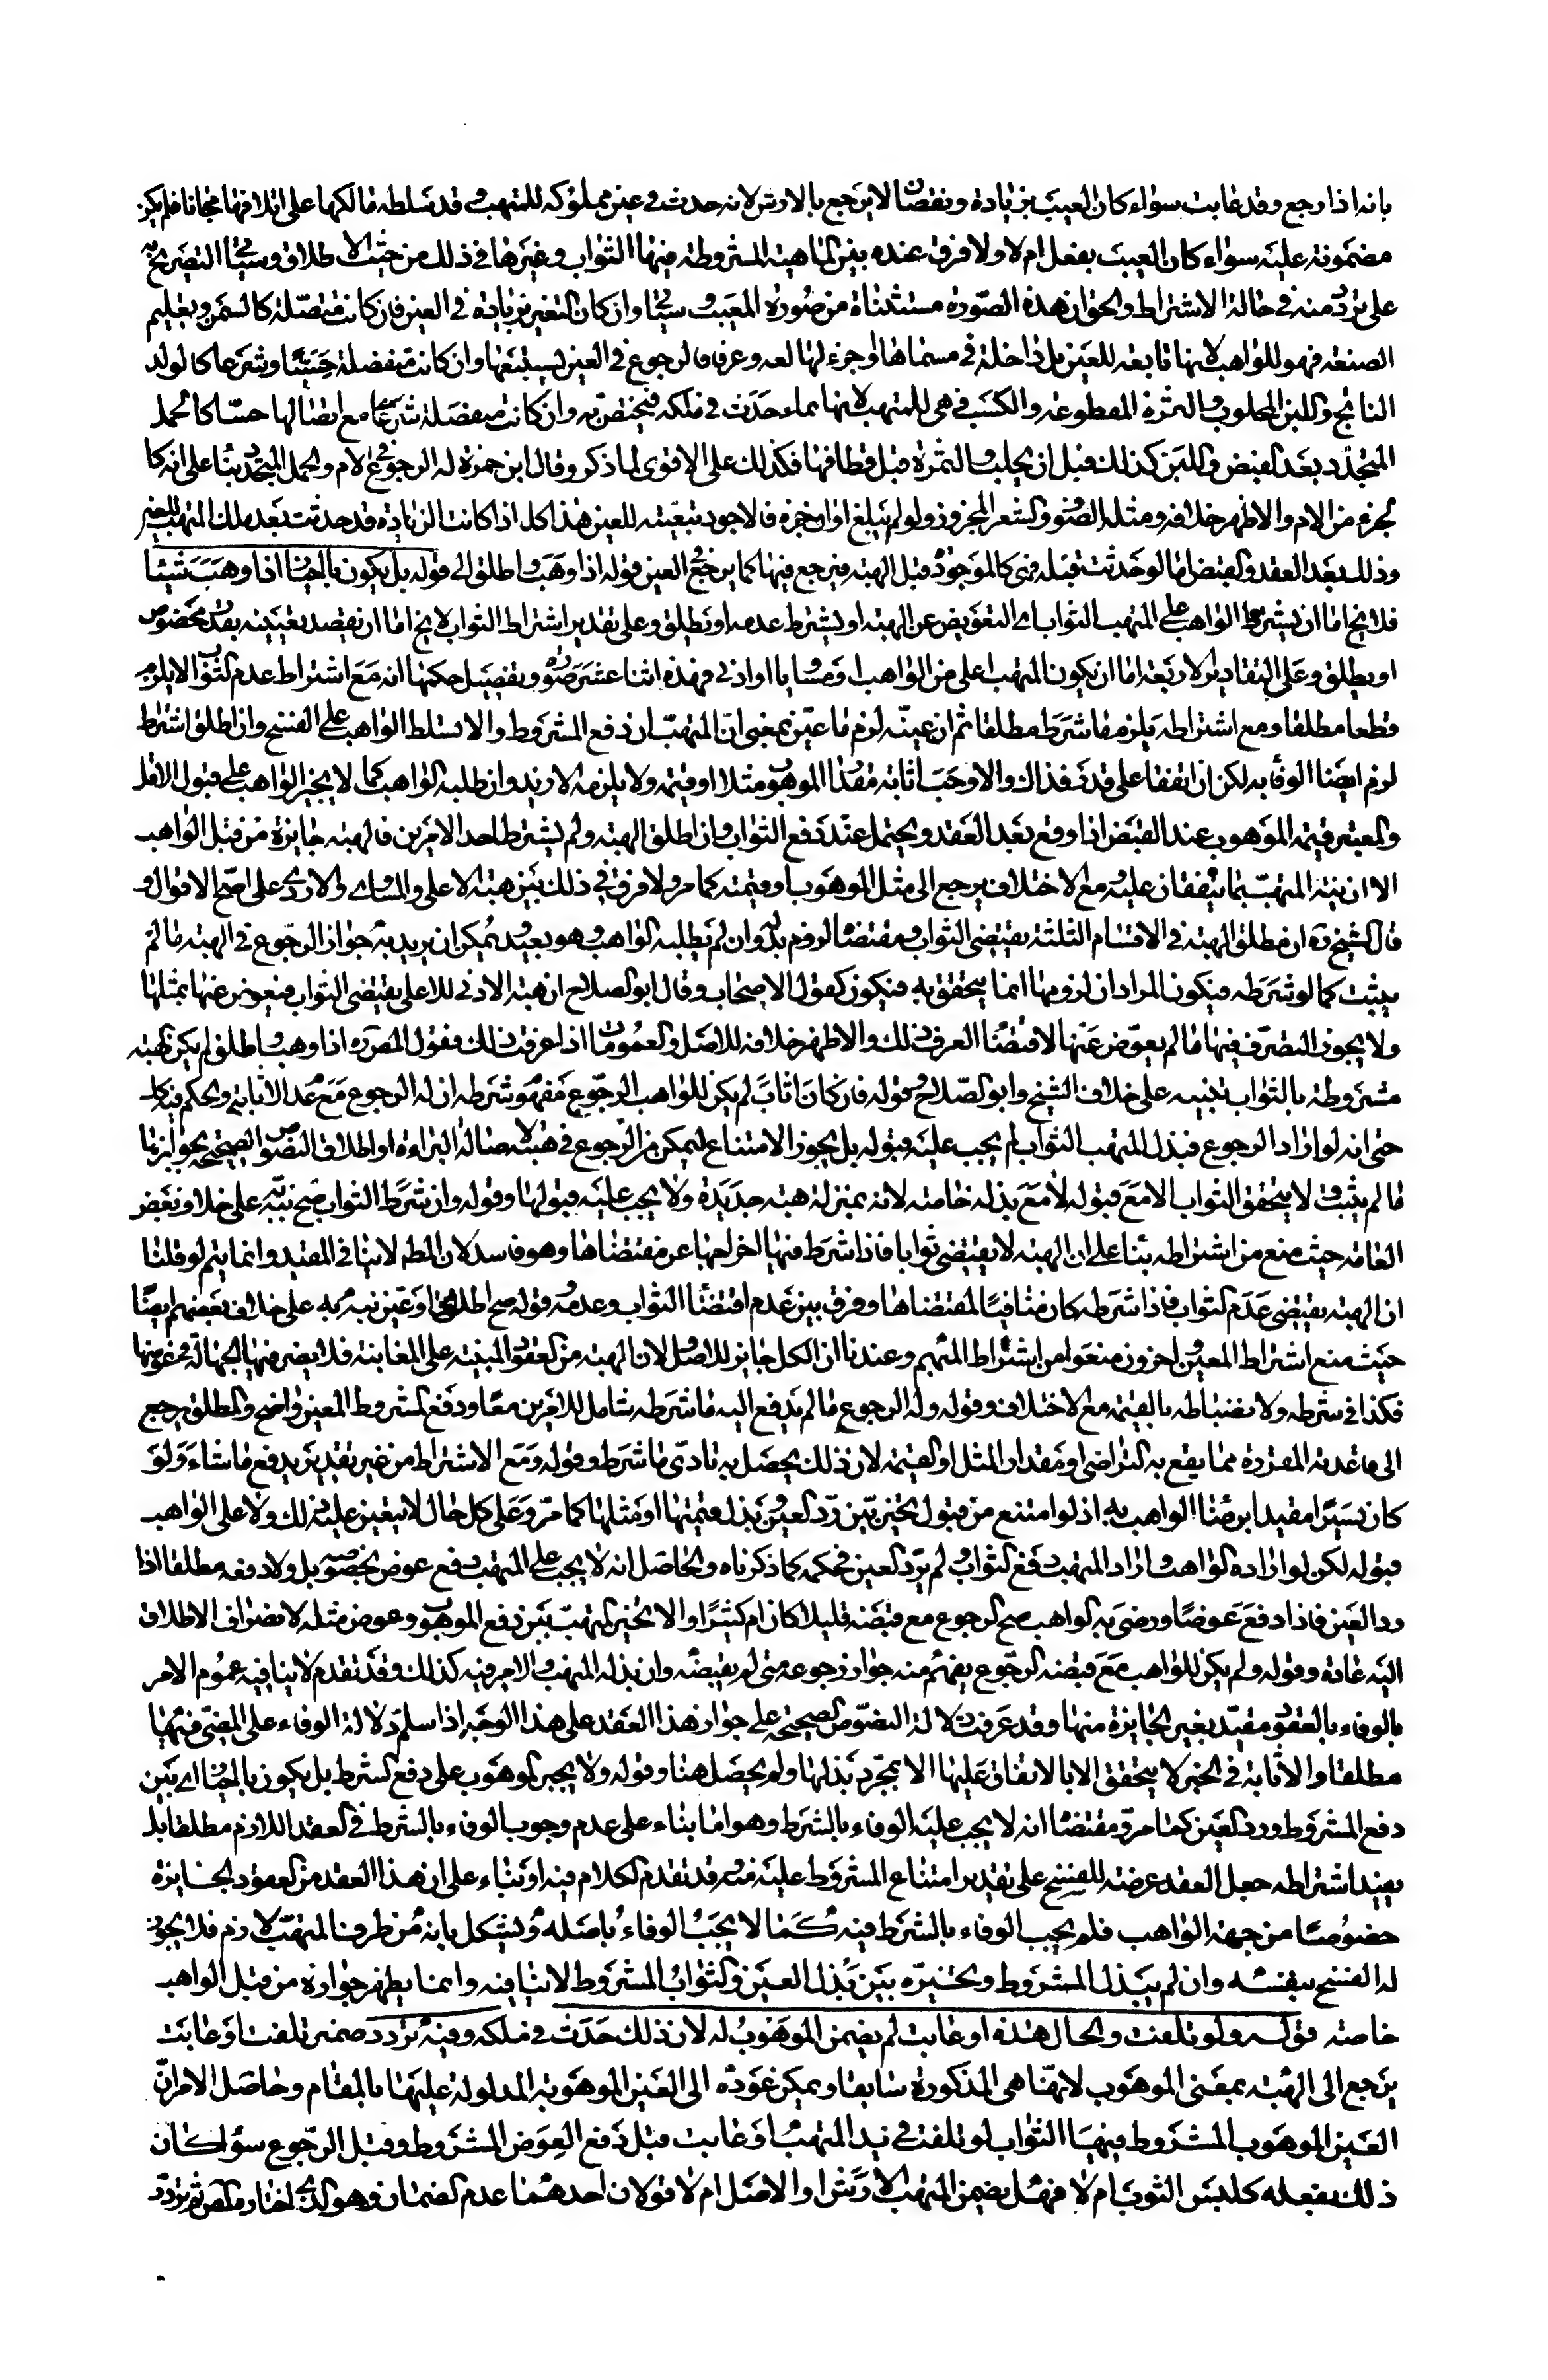 بانه اذا رجع وقد عابت سواء كان العيب بزيادة ونقصان لا يرجع بالارش لانه حدث في عين مملوكة للمتهب وقد سلطه مالكها على اتلافها مجانا فلم يكن
مضمونة عليه سواء كان العيب بفعل ام لا ولا فرق عنده بين الهبة المشروطة فيها الثواب وغيرها في ذلك من حيث الاطلاق وسيأتي التصريح به
على تردد منه في حالة الاشتراط والحق ان هذه الصورة مستثناة من صورة المعيب وسيأتي وان كان التغير بزيادة في العين فان كانت متصلة كالسمن وتعليم
الصنعة فهو للواهب لانها تابعة للعين بل داخلة في مسماها او جزء لها لغة وعرفا فالرجوع في العين يستتبعها وان كانت منفصلة حسا وشرعا كالولد
الناتج واللبن المحلوب والثمرة المقطوعة والكسب فهي للمتهب لانها نماء حدث في ملكه فيختص به وان كانت منفصلة شرعا مع اتصالها حسا كالحمل
المتجدد بعد القبض واللبن كذلك قبل ان يحلب والثمرة قبل قطافها فكذلك على الاقوى لما ذكر وقال ابن حمزة له الرجوع في الام والحمل المتجدد بناء على انه كا
لجزء من الام والاظهر خلافه ومثله الصوف والشعر المجزوز ولو لم يبلغ اوان جزه فالاجود تبعيته للعين هذا كله اذا كانت الزيادة قد حدثت بعد ملك المتهب للعين
وذلك بعد العقد والقبض اما لو حدثت قبله فهي كالموجودة قبل الهبة فيرجع فيها كما يرجع في العين قوله اذا وهب واطلق الى قوله بل يكون بالخيار اذا وهب شيئا
فلا يخ اما ان يشترط الواهب على المتهب الثواب اي التعويض عن الهبة او يشترط عدمه او يطلق وعلى تقدير اشتراط الثواب لا يخ اما ان يقصد تعيينه بقدر مخصوص
او يطلق وعلى التقادير الاربعة اما ان يكون المتهب اعلى من الواهب او مساويا او ادنى فهذه اثنا عشر صورة وتفصيل حكمها انه مع اشتراط عدم الثواب لا يلزم
قطعا مطلقا ومع اشتراطه يلزم ما شرط مطلقا ثم ان عينه لزم ما عين بمعنى ان المتهب ان دفع المشروط والا تسلط الواهب على الفسخ وان اطلق اشتراط
لزم ايضا الوفاء به لكن ان اتفقا على قدر فذاك والا وجب اثابة مقدار الموهوب مثلا او قيمة ولا يلزمه الازيد وان طلبه الواهب كما لا يجبر الواهب على قبول الاقل
والمعتبر قيمة الموهوب عند القبض اذا وقع بعد العقد ويحتمل عند دفع الثواب وان اطلق الهبة ولم يشترط احد الامرين فالهبة جايزة من قبل الواهب
الا ان يثيبه المتهب بما يتفقان عليه ومع الاختلاف يرجع الى مثل الموهوب او قيمته كما مر ولا فرق في ذلك بين هبة الاعلى والمساوي والادنى على اصح الاقوال و
قال الشيخ ره ان مطلق الهبة في الاقسام الثلثة يقتضي الثواب ومقتضاه لزوم بذله وان لم يطلبه الواهب وهو بعيد ويمكن ان يريد به جواز الرجوع في الهبة ما لم
يثبت كما لو شرطه فيكون المراد ان لزومها انما يتحقق به فيكون كقول الاصحاب وقال ابو الصلاح ان هبة الادنى للاعلى يقتضي الثواب فيعوض عنها بمثلها
ولا يجوز التصرف فيها ما لم يعوض عنها لاقتضاء العرف ذلك والاظهر خلافه للاصل والعمومات اذا عرفت ذلك فقول المص ره اذا وهب واطلق لم يكن الهبة
مشروطة بالثواب تنبيه على خلاف الشيخ وابو الصلاح وقوله فان كان اثاب لم يكن للواهب الرجوع مفهوم شرطه ان له الرجوع مع عدم الاثابة والحكم فيه كك
حتى انه لو اراد الرجوع فبذل المتهب الثواب لم يجب عليه قبوله بل يجوز الامتناع ليتمكن من الرجوع في هبته لاصالة البراءة او اطلاق النصوص الصحيحة بجوازها
ما لم يثب ولا يتحقق الثواب الا مع قبوله لا مع بذله خاصة لانه بمنزلة هبة جديدة ولا يجب عليه قبولها وقوله وان شرط الثواب صح نبه على خلاف بعض
العامة حيث منع من اشتراطه بناء على ان الهبة لا يقتضي ثوابا فاذا شرط فيها اخرجها عن مقتضاها وهو فاسد لان المطلق لا ينافي المقيد وانما يتم لو قلنا
ان الهبة يقتضي عدم الثواب فاذا شرطه كان منافيا لمقتضاها وفرق بين عدم اقتضاء الثواب وعدمه وقوله صح اطلق او عين نبه به على خلاف بعضهم ايضا
حيث منع اشتراط المعين واخرون منعوا من اشتراط المبهم وعندنا ان الكل جايز للاصل ولان الهبة من العقود المبنية على المغابنة فلا يضر فيها الجهالة في عوضها
فكذا في شرطه ولانضباطه بالقيمة مع الاختلاف وقوله وله الرجوع ما لم يدفع اليه ما شرطه شامل للامرين معا ودفع المشروط المعين واضح والمطلق يرجع
الى قاعدته المقررة مما يقع به التراضي او مقدار المثل او القيمة لان ذلك يحصل به تادي ما شرط وقوله ومع الاشتراط من غير تقدير يدفع ما شاء ولو
كان يسيرا مقيد برضا الواهب به اذ لو امتنع من قبوله تخير بين رد العين وبذل قيمتها او مثلها كما مر وعلى كل حال لا يتعين عليه ذلك ولا على الواهب
قبوله لكن لو اراده الواهب واراد المتهب دفع الثواب ولم يرد العين فحكمه كما ذكرناه والحاصل انه لا يجب على المتهب دفع عوض بخصوصه بل ولا دفعه مطلقا اذا
رد العين فاذا دفع عوضا ورضي به الواهب صح الرجوع مع قبضه قليلا كان ام كثيرا والا تخير المتهب بين دفع الموهوب وعوض مثله لانصراف الاطلاق
اليه عادة وقوله ولم يكن للواهب مع قبضه الرجوع يفهم منه جواز رجوعه متى لم يقبضه وان بذله المتهب والامر فيه كذلك وقد تقدم ولا ينافيه عموم الامر
بالوفاء بالعقود مقيد بغير الجايزة منها وقد عرفت دلالة النصوص الصحيحة على جواز هذا العقد على هذا الوجه اذا سلم دلالة الوفاء على المضي فيها
مطلقا والاثابة في الخبر لا يتحقق الا بالاتفاق عليها الا بمجرد بذلها ولم يحصل هنا وقوله ولا يجبر الموهوب على دفع الشرط بل يكون بالخيار اي بين
دفع المشروط ورد العين كما مر ومقتضاه انه لا يجب عليه الوفاء بالشرط وهو اما بناء على عدم وجوب الوفاء بالشرط في العقد اللازم مطلقا بل
يفيد اشتراطه جعل العقد عرضة للفسخ على تقدير امتناع المشروط عليه منه وقد تقدم الكلام فيه او بناء على ان هذا العقد من العقود الجايزة
خصوصا من جهة الواهب فلم يجب الوفاء بالشرط فيه كما لا يجب الوفاء باصله ويشكل بانه من طرف المتهب لازم فلا يجوز
له الفسخ بنفسه وان لم يبذل المشروط وتخيره بين بذل العين والثواب المشروط لا ينافيه وانما يظهر جوازه من قبل الواهب
خاصة قوله ولو تلفت والحال هذه او عابت لم يضمن الموهوب له لان ذلك حدث في ملكه وفيه تردد ضمير تلفت او عابت
يرجع الى الهبة بمعنى الموهوب لانها هي المذكورة سابقا ويمكن عوده الى العين الموهوبة المدلولة عليها بالمقام وحاصل الامر ان
العين الموهوب المشروط فيها الثواب لو تلفت في يد المتهب او عابت قبل دفع العوض المشروط وقبل الرجوع سواء كان
ذلك بفعله كلبس الثوب ام لا فهل يضمن المتهب الارش او الاصل ام لا قولان احدهما عدم الضمان وهو الذي اختاره المص ثم تردد